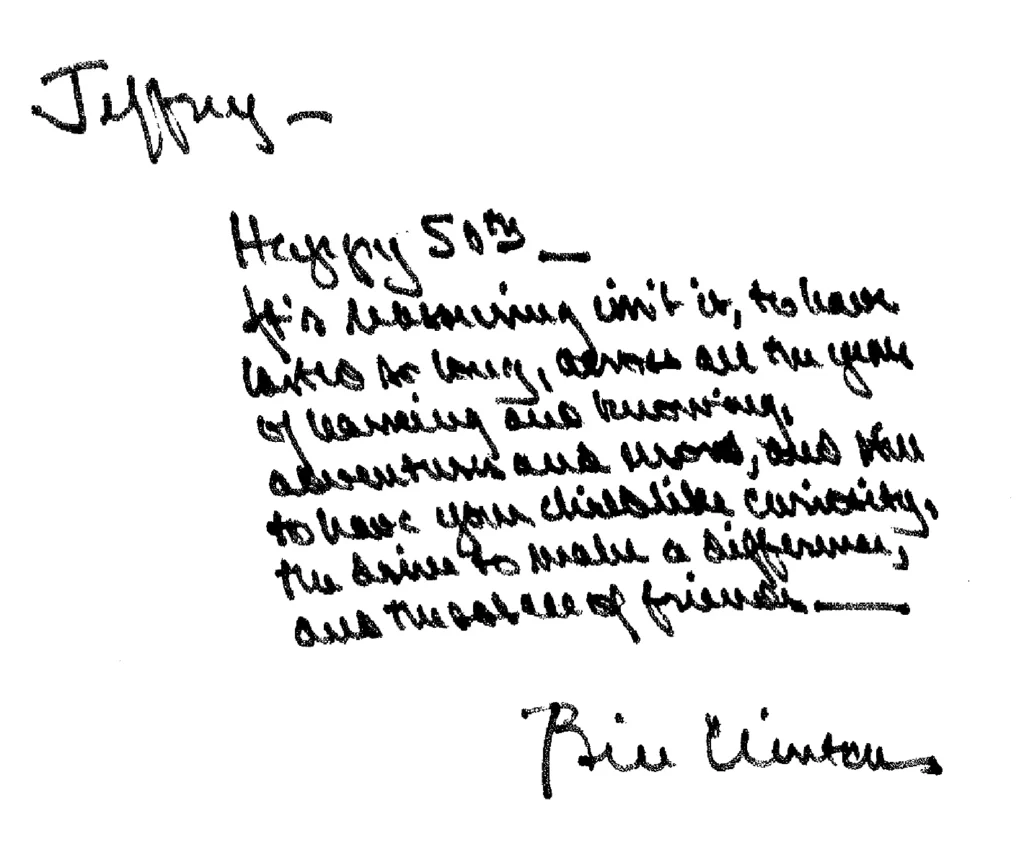 Jeffrey —
Happy 50th —
It's reassuring isn't it, to have
lasted so long, across all the years
of learning and knowing,
adventures and    , and still
to have your childlike curiosity,
the drive to make a difference,
and the solace of friends ———
Bill Clinton